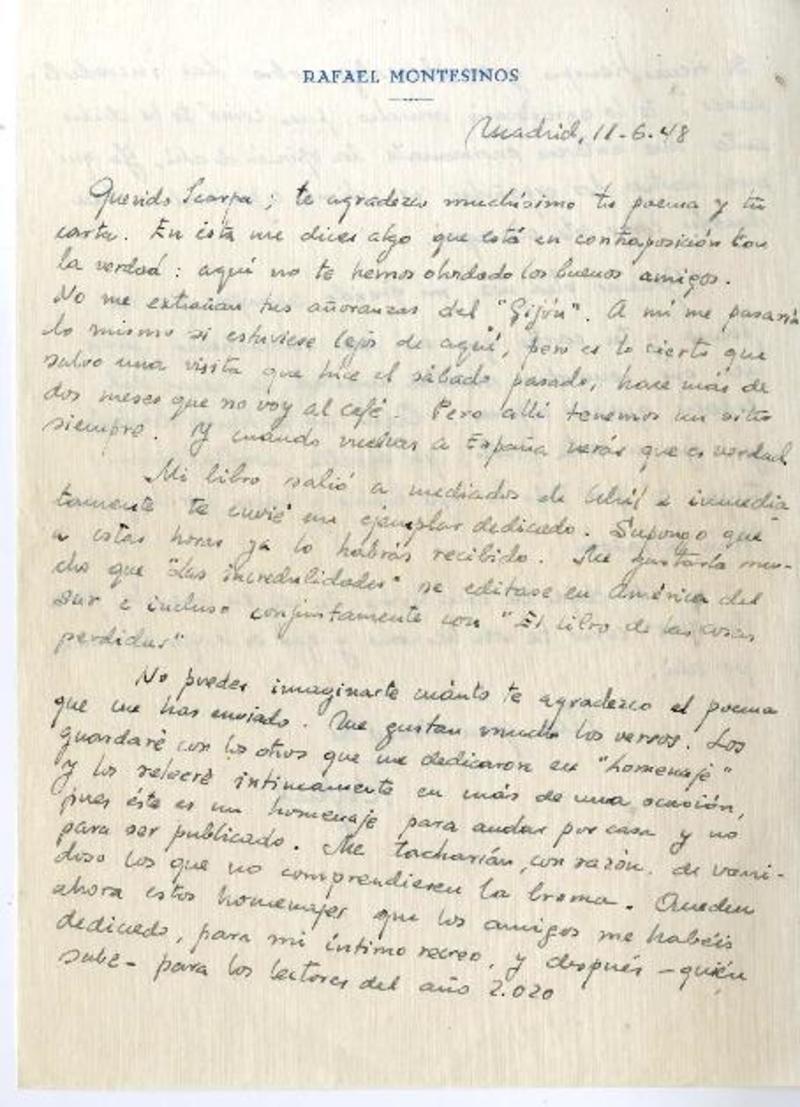 RAFAEL MONTESINOS
Madrid, 11-6-48
Querido Scarpa; te agradezco muchísimo tu poema y tu
carta. En ésta me dices algo que está en contraposición con
la verdad: aquí no te hemos olvidado los buenos amigos.
No me extrañan tus añoranzas del "Gijón". A mí me pasaría
lo mismo si estuviese lejos de aquí, pero es lo cierto que
salvo una visita que hice el sábado pasado, hace más de
dos meses que no voy al café. Pero allí tenemos un sitio
siempre. Y cuando vuelvas a España verás que es verdad.
Mi libro salió a mediados de Abril e inmedia-
tamente te envié un ejemplar dedicado. Supongo que
a estas horas ya lo habrás recibido. Me gustaría mu-
cho que "Las incredulidades" se editase en América del
Sur e incluso conjuntamente con "El libro de las cosas
perdidas"
No puedes imaginarte cuánto te agradezco el poema
que me has enviado. Me gustan mucho los versos. Los
guardaré con los otros que me dedicaron en "homenaje"
y los releeré íntimamente en más de una ocasión,
pues éste es un homenaje para andar por casa y no
para ser publicado. Me tacharían, con razón, de vani-
doso los que no comprendiesen la broma. Queden
ahora estos homenajes que los amigos me habéis
dedicado, para mi íntimo recreo, y después -quién
sabe- para los lectores del año 2.020